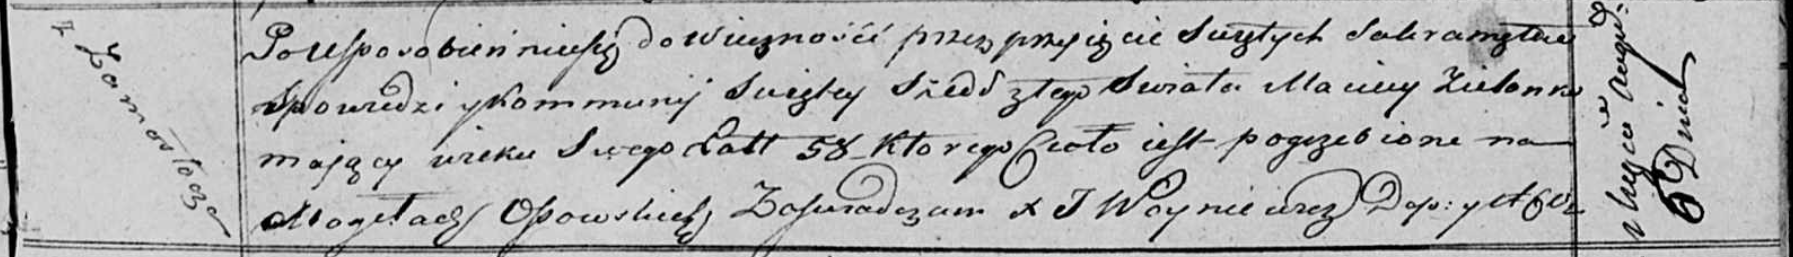 z Zamostocza
Po Usposobieniu się do wieczności przez przyięcie Swiętych Sakramętow
Spowiedzi y Kommunij Swiętey Szedł z tego Swiata Maciey Zielonka
maiący wieku Swego Latt 58 Ktorego Ciało iest pogrzebione na
Mogiłach Ossowskich Zaświadczam X J Woyniewicz Dep: y
Dnia
6